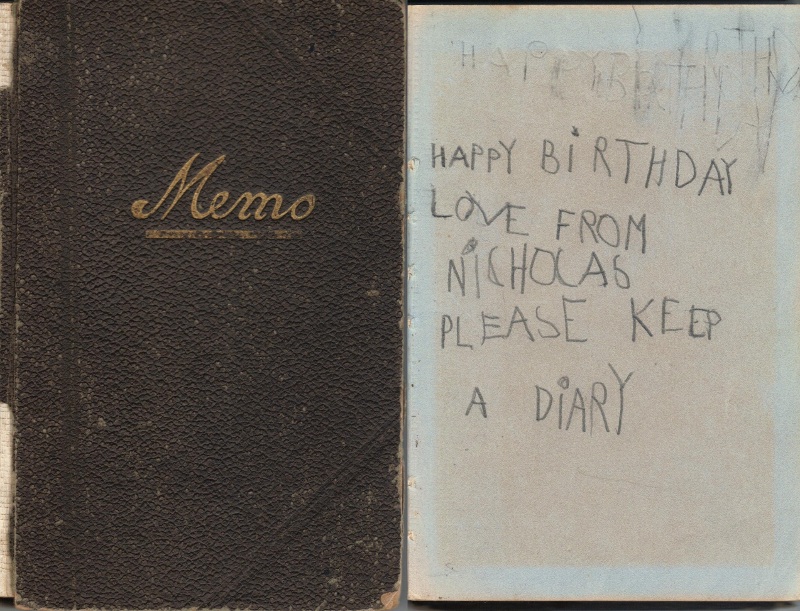 Memo
HAPPY BIRTHDAY
HAPPY BiRTHDAY
LOVE FROM
NiCHOLAS
PLEASE KEEP
A DiARY